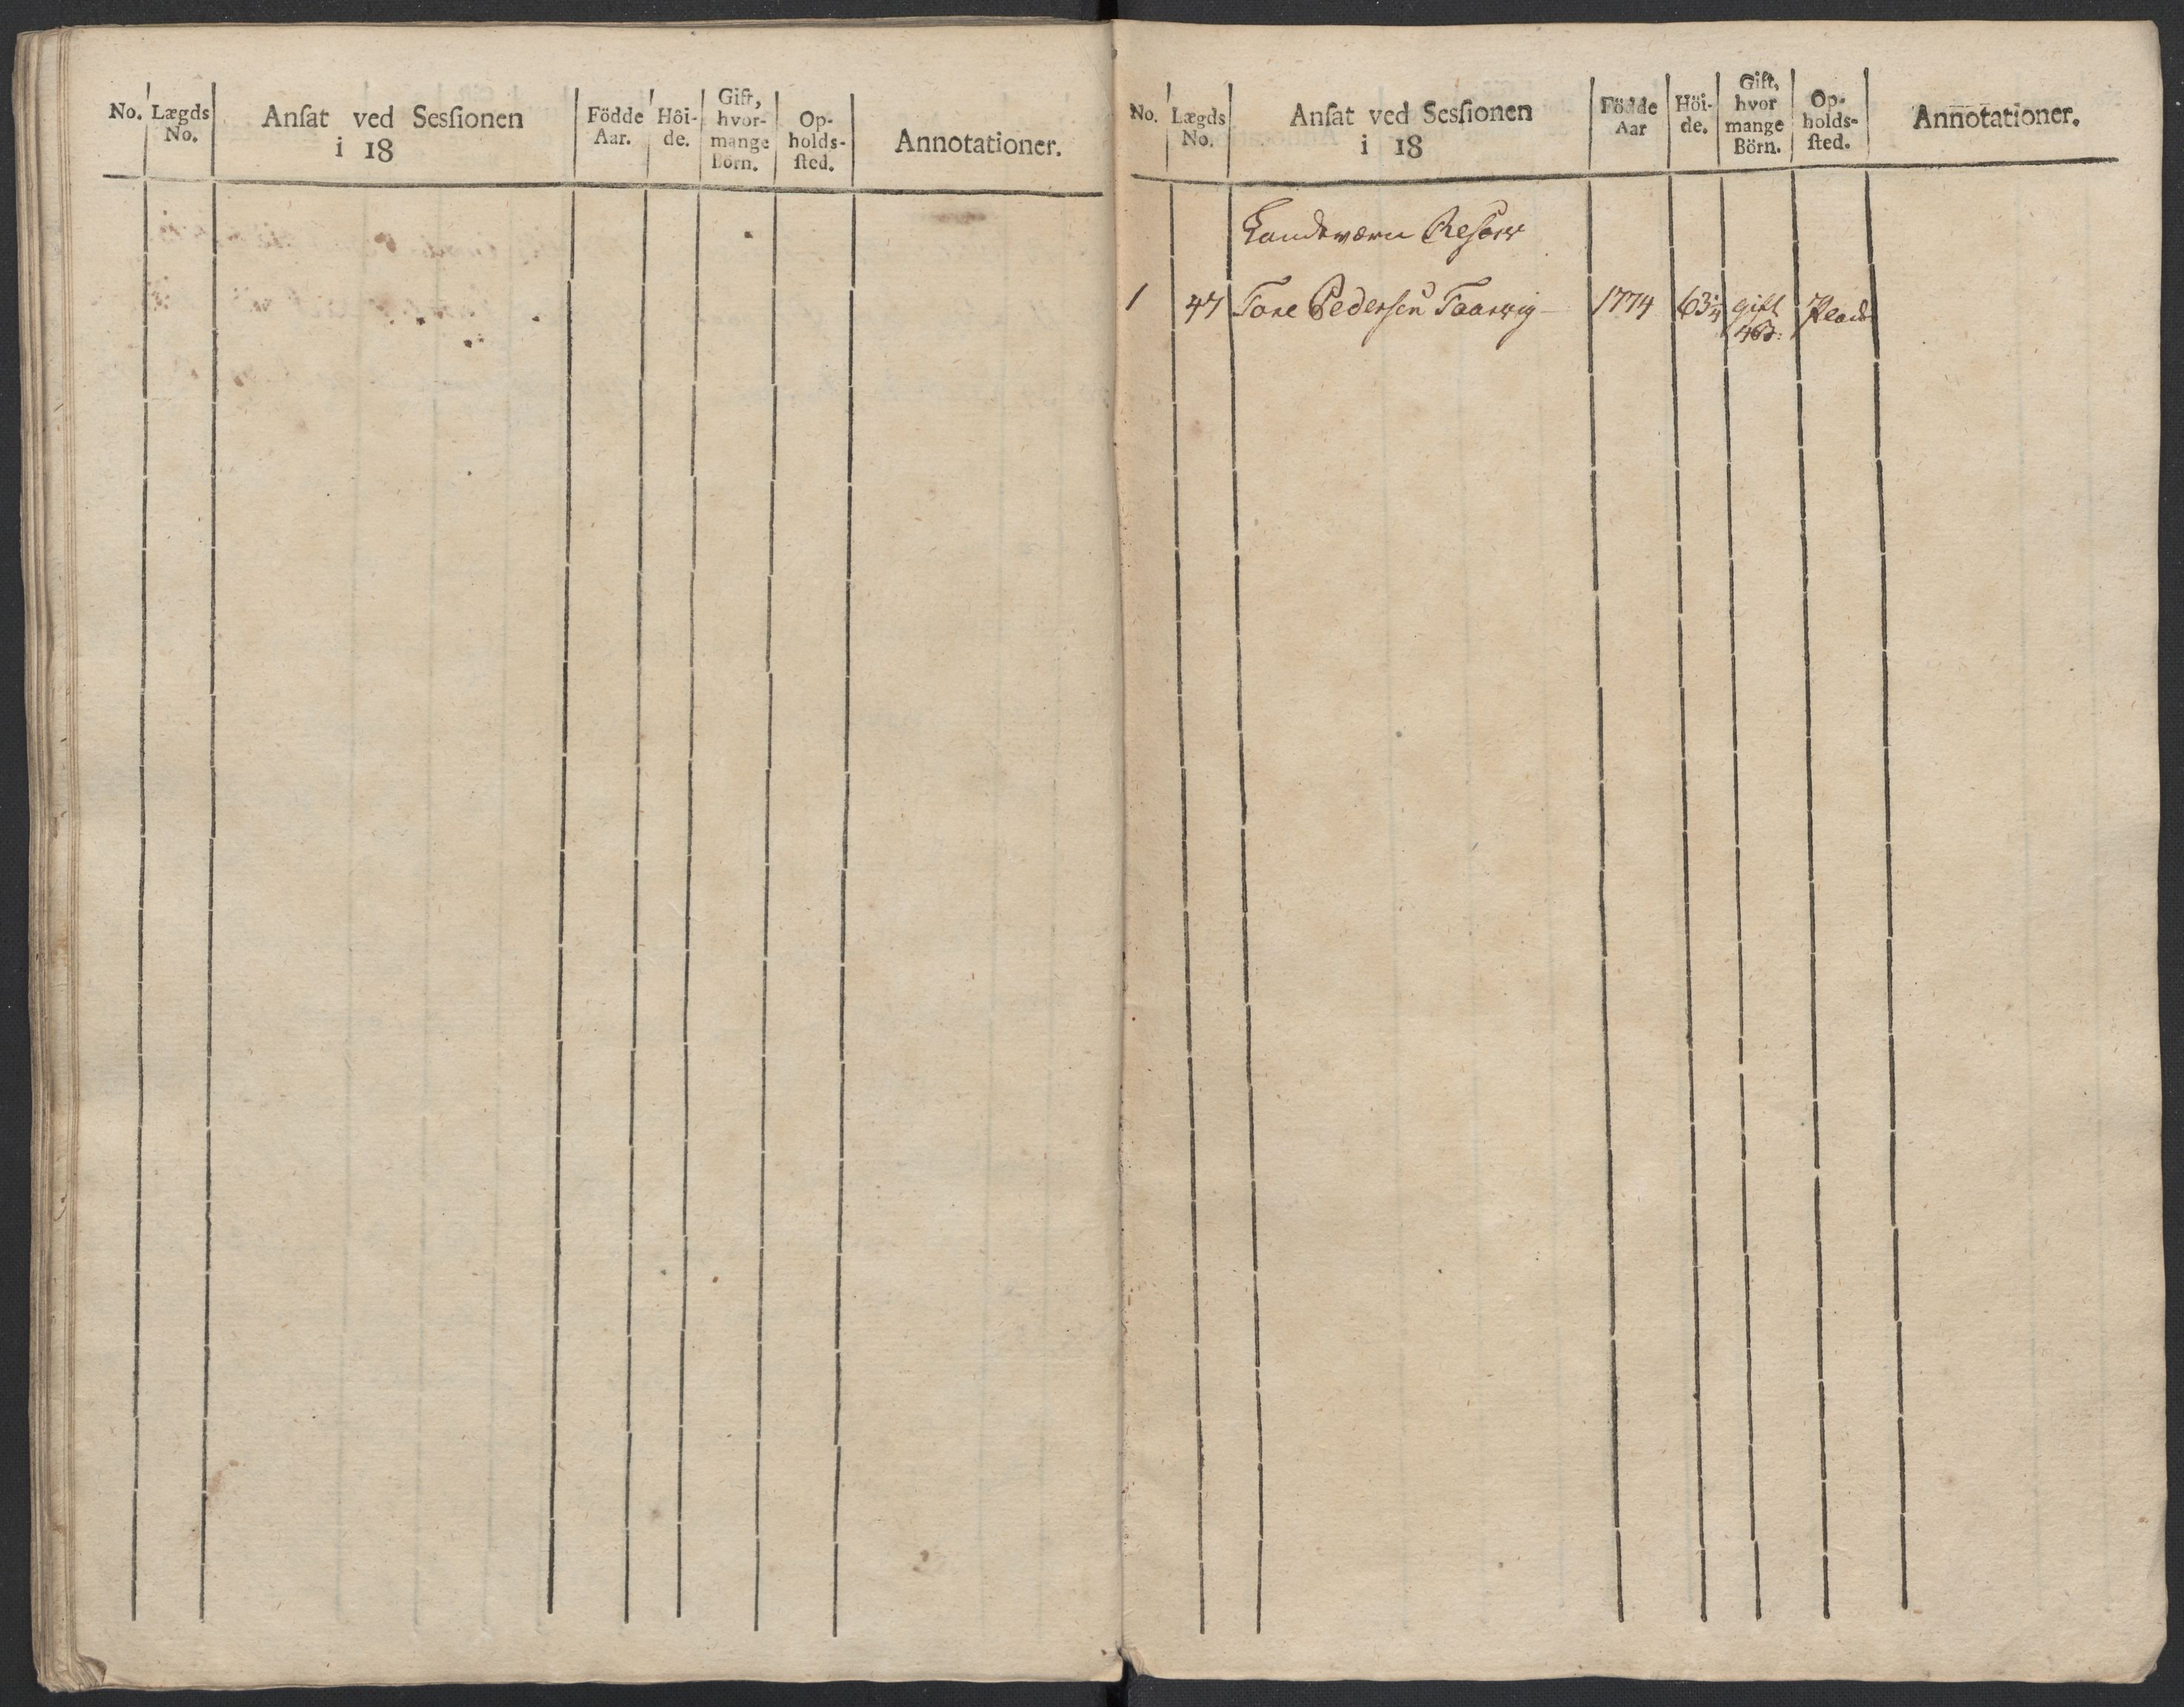 No. Lægds No. Anſat ved Sesſionen i 18 Födde Aar. Höi-de. Gift, hvor-mange Börn. Op-holds-ſted. Annotationer.
No. Lægds No. Anſat ved Sesſionen i 18 Födde Aar Höi-de. Gift, hvor mange Börn. Op-holds-ſted. Annotationer.
Landeværn Reserv
1 47 Tore Pedersen Taarvig 1774 63 gift